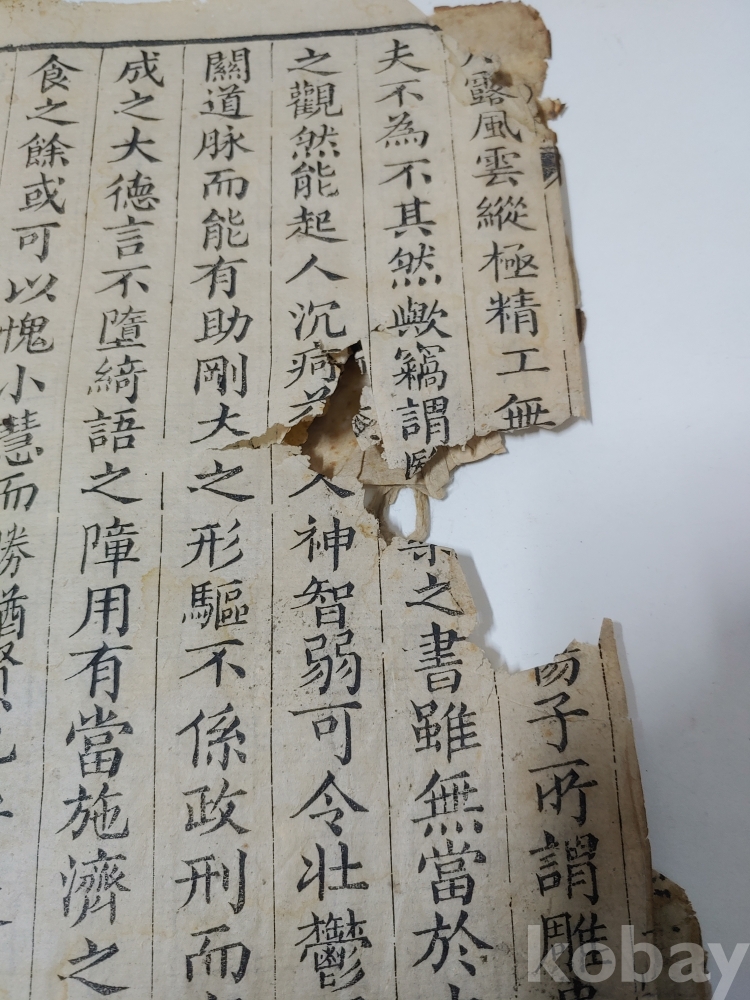 露風雲縱極精工無子所謂雕
夫不為不其然歟竊謂之書雖無當於
之觀然能起人沉痾人神智弱可令壯鬱
關道脉而能有助剛大之形驅不係政刑而
成之大德言不墮綺語之障用有當施濟之
食之餘或可以愧小慧而勝猶賢
kobay